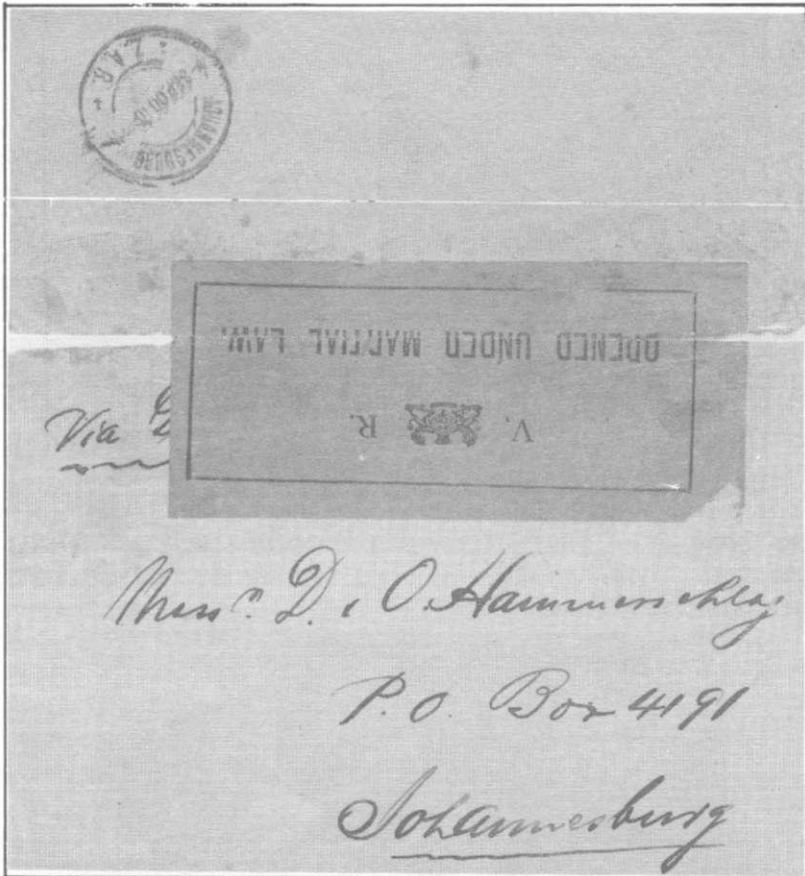 JOHANNESBURG
Z.A.R.
SEP 00
V. R.
OPENED UNDER MARTIAL LAW.
Via
Messrs. D. & O. Hammerschlag
P.O. Box 4191
Johannesburg